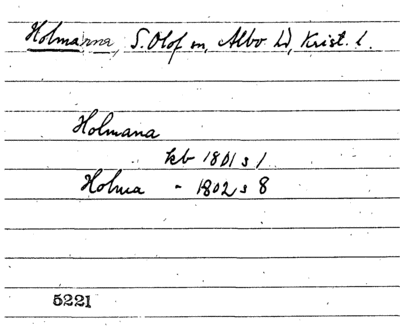 Holmarna, S. Olof sn, Albo hd, Krist. l.
Holmana
kb 1801 s 1
Holma - 1802 s 8
5221